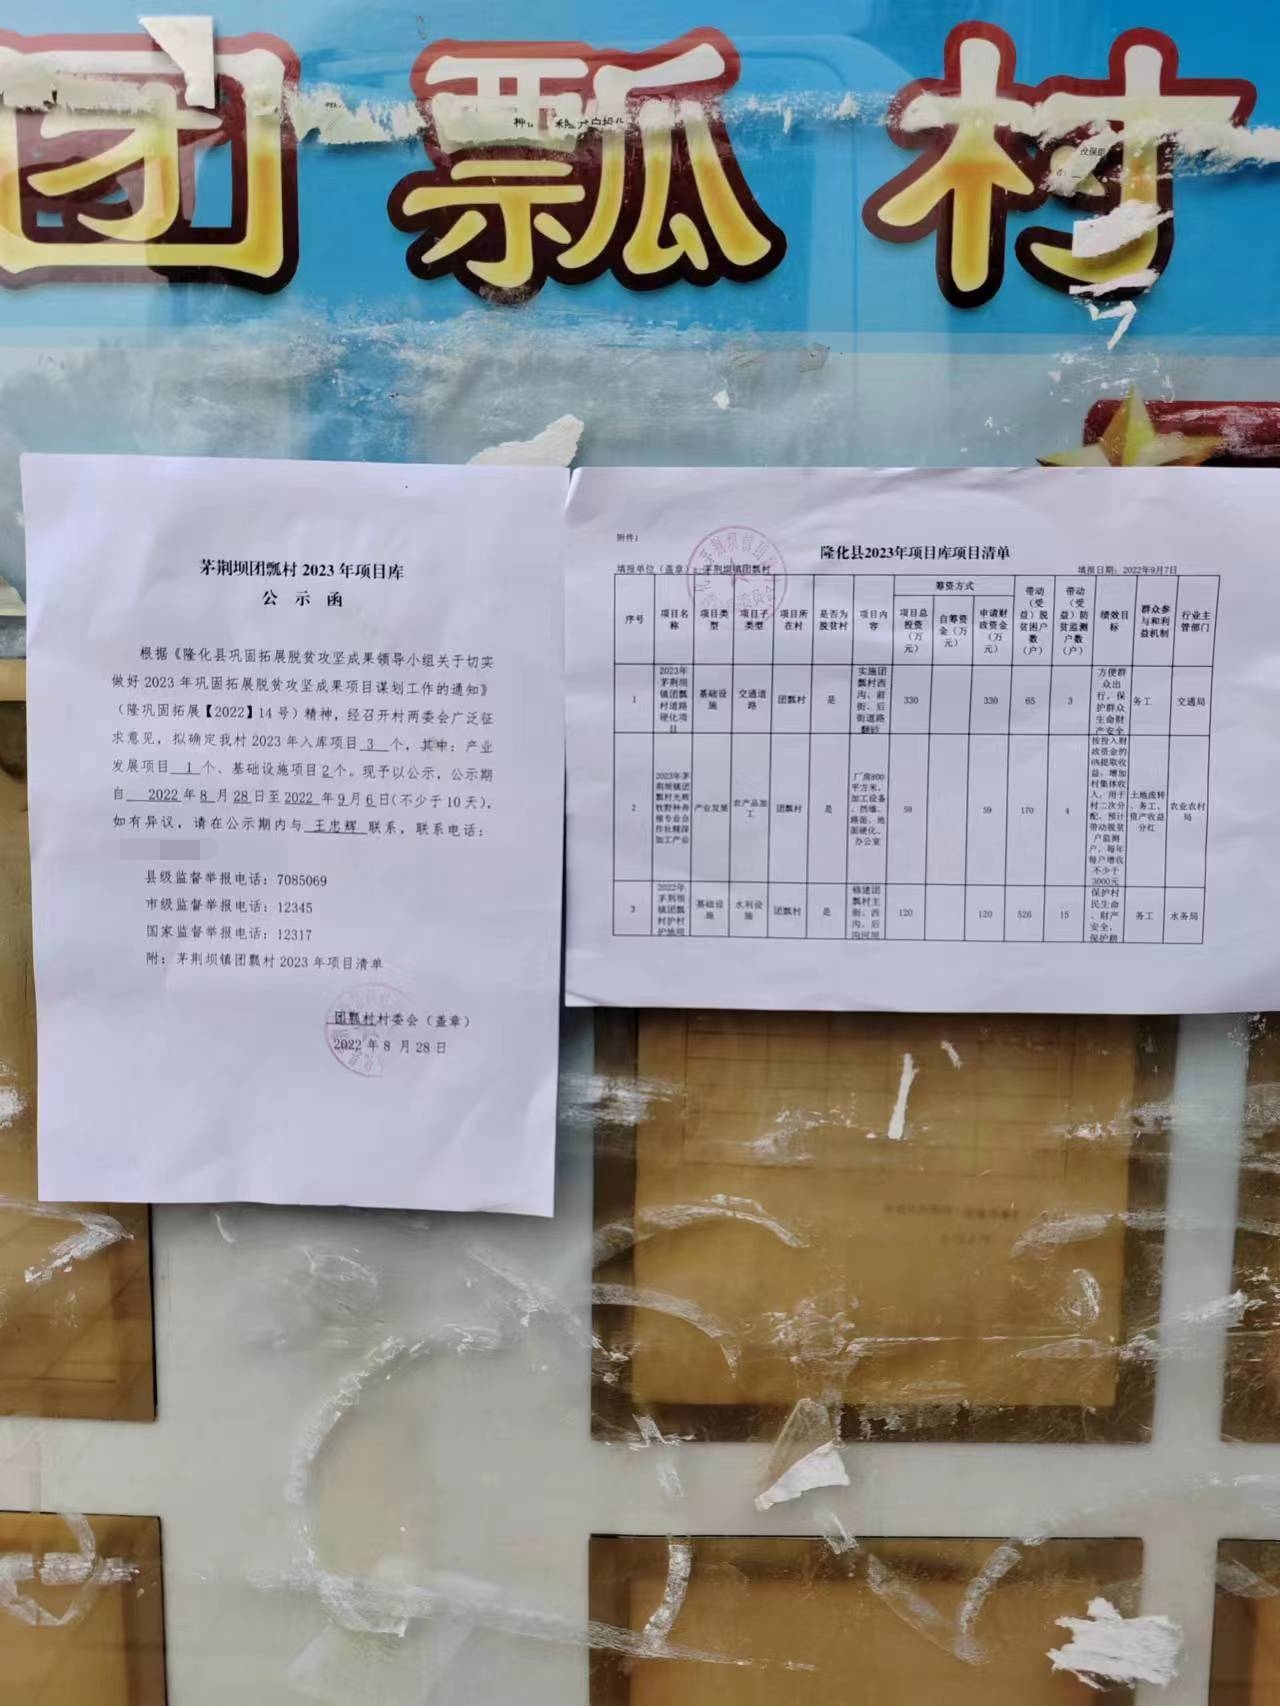 团瓢村
茅荆坝团瓢村 2023 年项目库
公 示 函
根据《隆化县巩固拓展脱贫攻坚成果领导小组关于切实
做好 2023 年巩固拓展脱贫攻坚成果项目谋划工作的通知》
（隆巩固拓展【2022】14 号）精神，经召开村两委会广泛征
求意见，拟确定我村 2023 年入库项目 3 个，其中：产业
发展项目 1 个、基础设施项目 2 个。现予以公示，公示期
自 2022 年 8 月 28 日至 2022 年 9 月 6 日（不少于 10 天），
如有异议，请在公示期内与 王忠辉 联系，联系电话：
县级监督举报电话：7085069
市级监督举报电话：12345
国家监督举报电话：12317
附：茅荆坝镇团瓢村 2023 年项目清单
团瓢村村委会（盖章）
2022 年 8 月 28 日
附件1
隆化县2023年项目库项目清单
填报单位（盖章）：茅荆坝镇团瓢村 填报日期：2022年9月7日
序号 项目名称 项目类型 项目子类型 项目所在村 是否为脱贫村 项目内容 筹资方式 项目总投资（万元） 自筹资金（万元） 申请财政资金（万元） 带动（受益）脱贫困户数（户） 带动（受益）防贫监测户数（户） 绩效目标 群众参与和利益机制 行业主管部门
1 2023年茅荆坝镇团瓢村道路硬化项目 基础设施 交通道路 团瓢村 是 实施团瓢村西沟、前街、后街道路翻砂 330 330 65 3 方便群众出行，保护群众生命财产安全 务工 交通局
2 2023年茅荆坝镇团瓢村 专业合作社 深加工产业 产业发展 农产品加工 团瓢村 是 厂房800平方米，加工设备、挡墙、路面、地面硬化、办公室 59 59 170 4 按投入财政资金的6%提取收益，增加村集体收入，用于村二次分配，预计带动脱贫户监测户，每年每户增收不少于3000元 土地流转、务工、资产收益分红 农业农村局
3 2022年茅荆坝镇团瓢村护村护地坝 基础设施 水利设施 团瓢村 是 修建团瓢村主街、西沟、后沟河坝 120 120 526 15 保护村民生命、财产安全，保护耕 务工 水务局